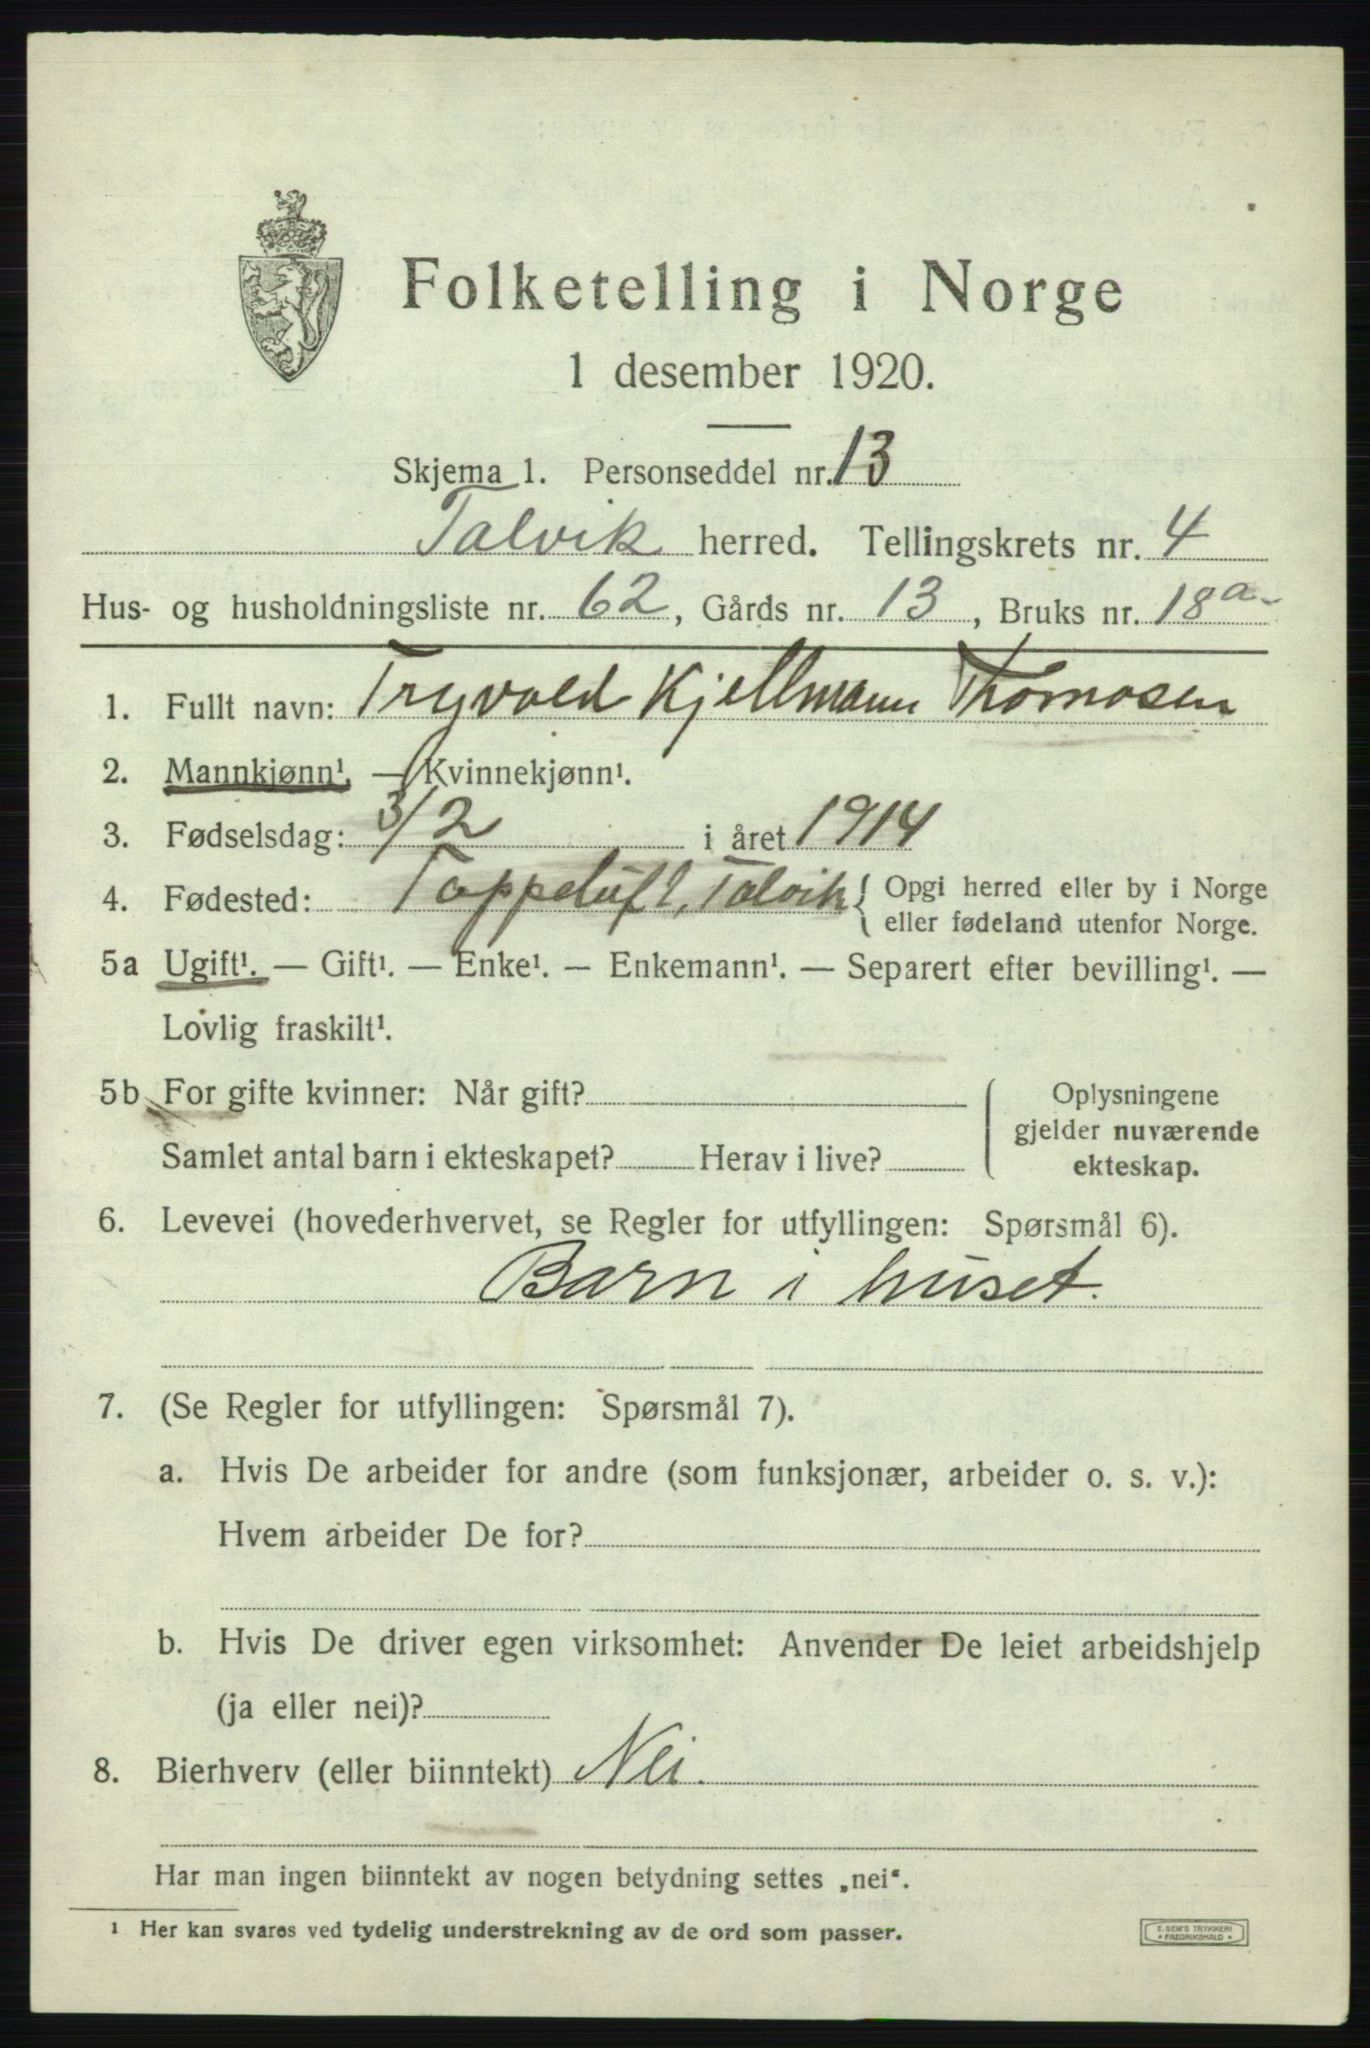 Folketelling i Norge
1 desember 1920.
Skjema 1. Personseddel nr. 13
Talvik herred. Tellingskrets nr. 4
Hus- og husholdningsliste nr. 62, Gårds nr. 13, Bruks nr. 18a
1. Fullt navn: Trygvald Kjellmann Thomasen
2. Mannkjønn¹. — Kvinnekjønn¹.
3. Fødselsdag: 3/2 i året 1914
4. Fødested: Toppeluft, Talvik { Opgi herred eller by i Norge
eller fødeland utenfor Norge.
5a Ugift¹. — Gift¹. — Enke¹. — Enkemann¹. — Separert efter bevilling¹. —
Lovlig fraskilt¹.
5b For gifte kvinner: Når gift?
Samlet antal barn i ekteskapet? Herav i live?
Oplysningene
gjelder nuværende
ekteskap.
6. Levevei (hovederhvervet, se Regler for utfyllingen: Spørsmål 6).
Barn i huset.
7. (Se Regler for utfyllingen: Spørsmål 7).
a. Hvis De arbeider for andre (som funksjonær, arbeider o. s. v.):
Hvem arbeider De for?
b. Hvis De driver egen virksomhet: Anvender De leiet arbeidshjelp
(ja eller nei)?
8. Bierhverv (eller biinntekt) Nei.
Har man ingen biinntekt av nogen betydning settes „nei“.
¹ Her kan svares ved tydelig understrekning av de ord som passer.
E. SEM'S TRYKKERI
• FREDRIKSHALD •